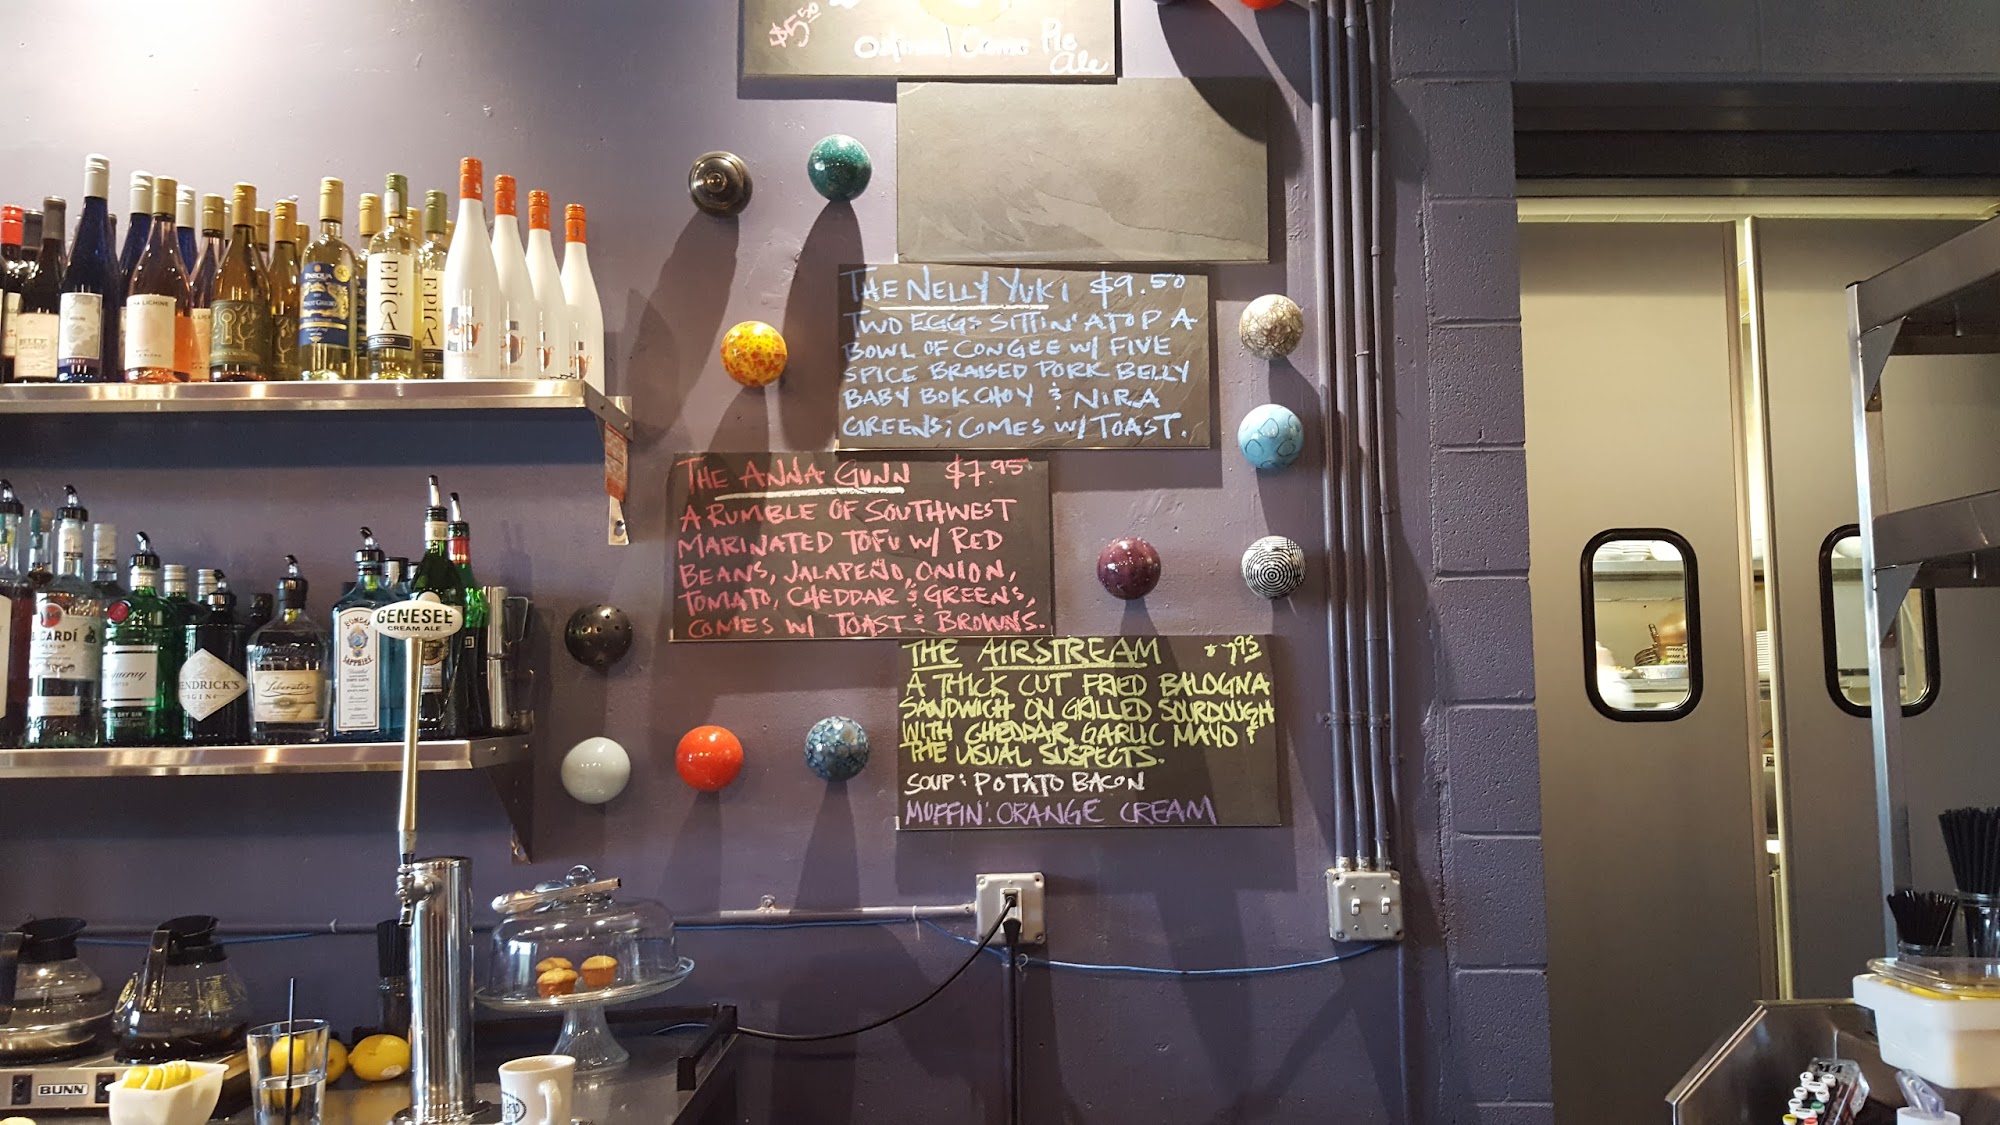 $5.50
Oatmeal Creme Pie
Ale
THE NELLY YUKI $9.50
TWO EGGS SITTIN' ATOP A
BOWL OF CONGEE W/ FIVE
SPICE BRAISED PORK BELLY
BABY BOK CHOY & NIRA
GREENS; COMES W/ TOAST.
THE ANNA GUNN $7.95
A RUMBLE OF SOUTHWEST
MARINATED TOFU W/ RED
BEANS, JALAPEÑO, ONION,
TOMATO, CHEDDAR & GREENS,
COMES W/ TOAST & BROWNS.
THE AIRSTREAM $7.95
A THICK CUT FRIED BALOGNA
SANDWICH ON GRILLED SOURDOUGH
WITH CHEDDAR, GARLIC MAYO &
THE USUAL SUSPECTS.
SOUP: POTATO BACON
MUFFIN: ORANGE CREAM
PASQUA
EPICA
EPICA
BOMBAY
SAPPHIRE
GENESEE
CREAM ALE
HENDRICK'S
GIN
BUNN